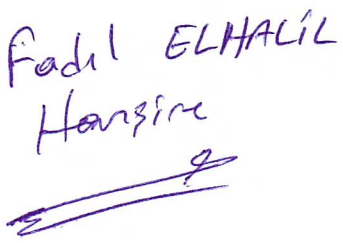 Fadıl ELHALİL
Hemşire